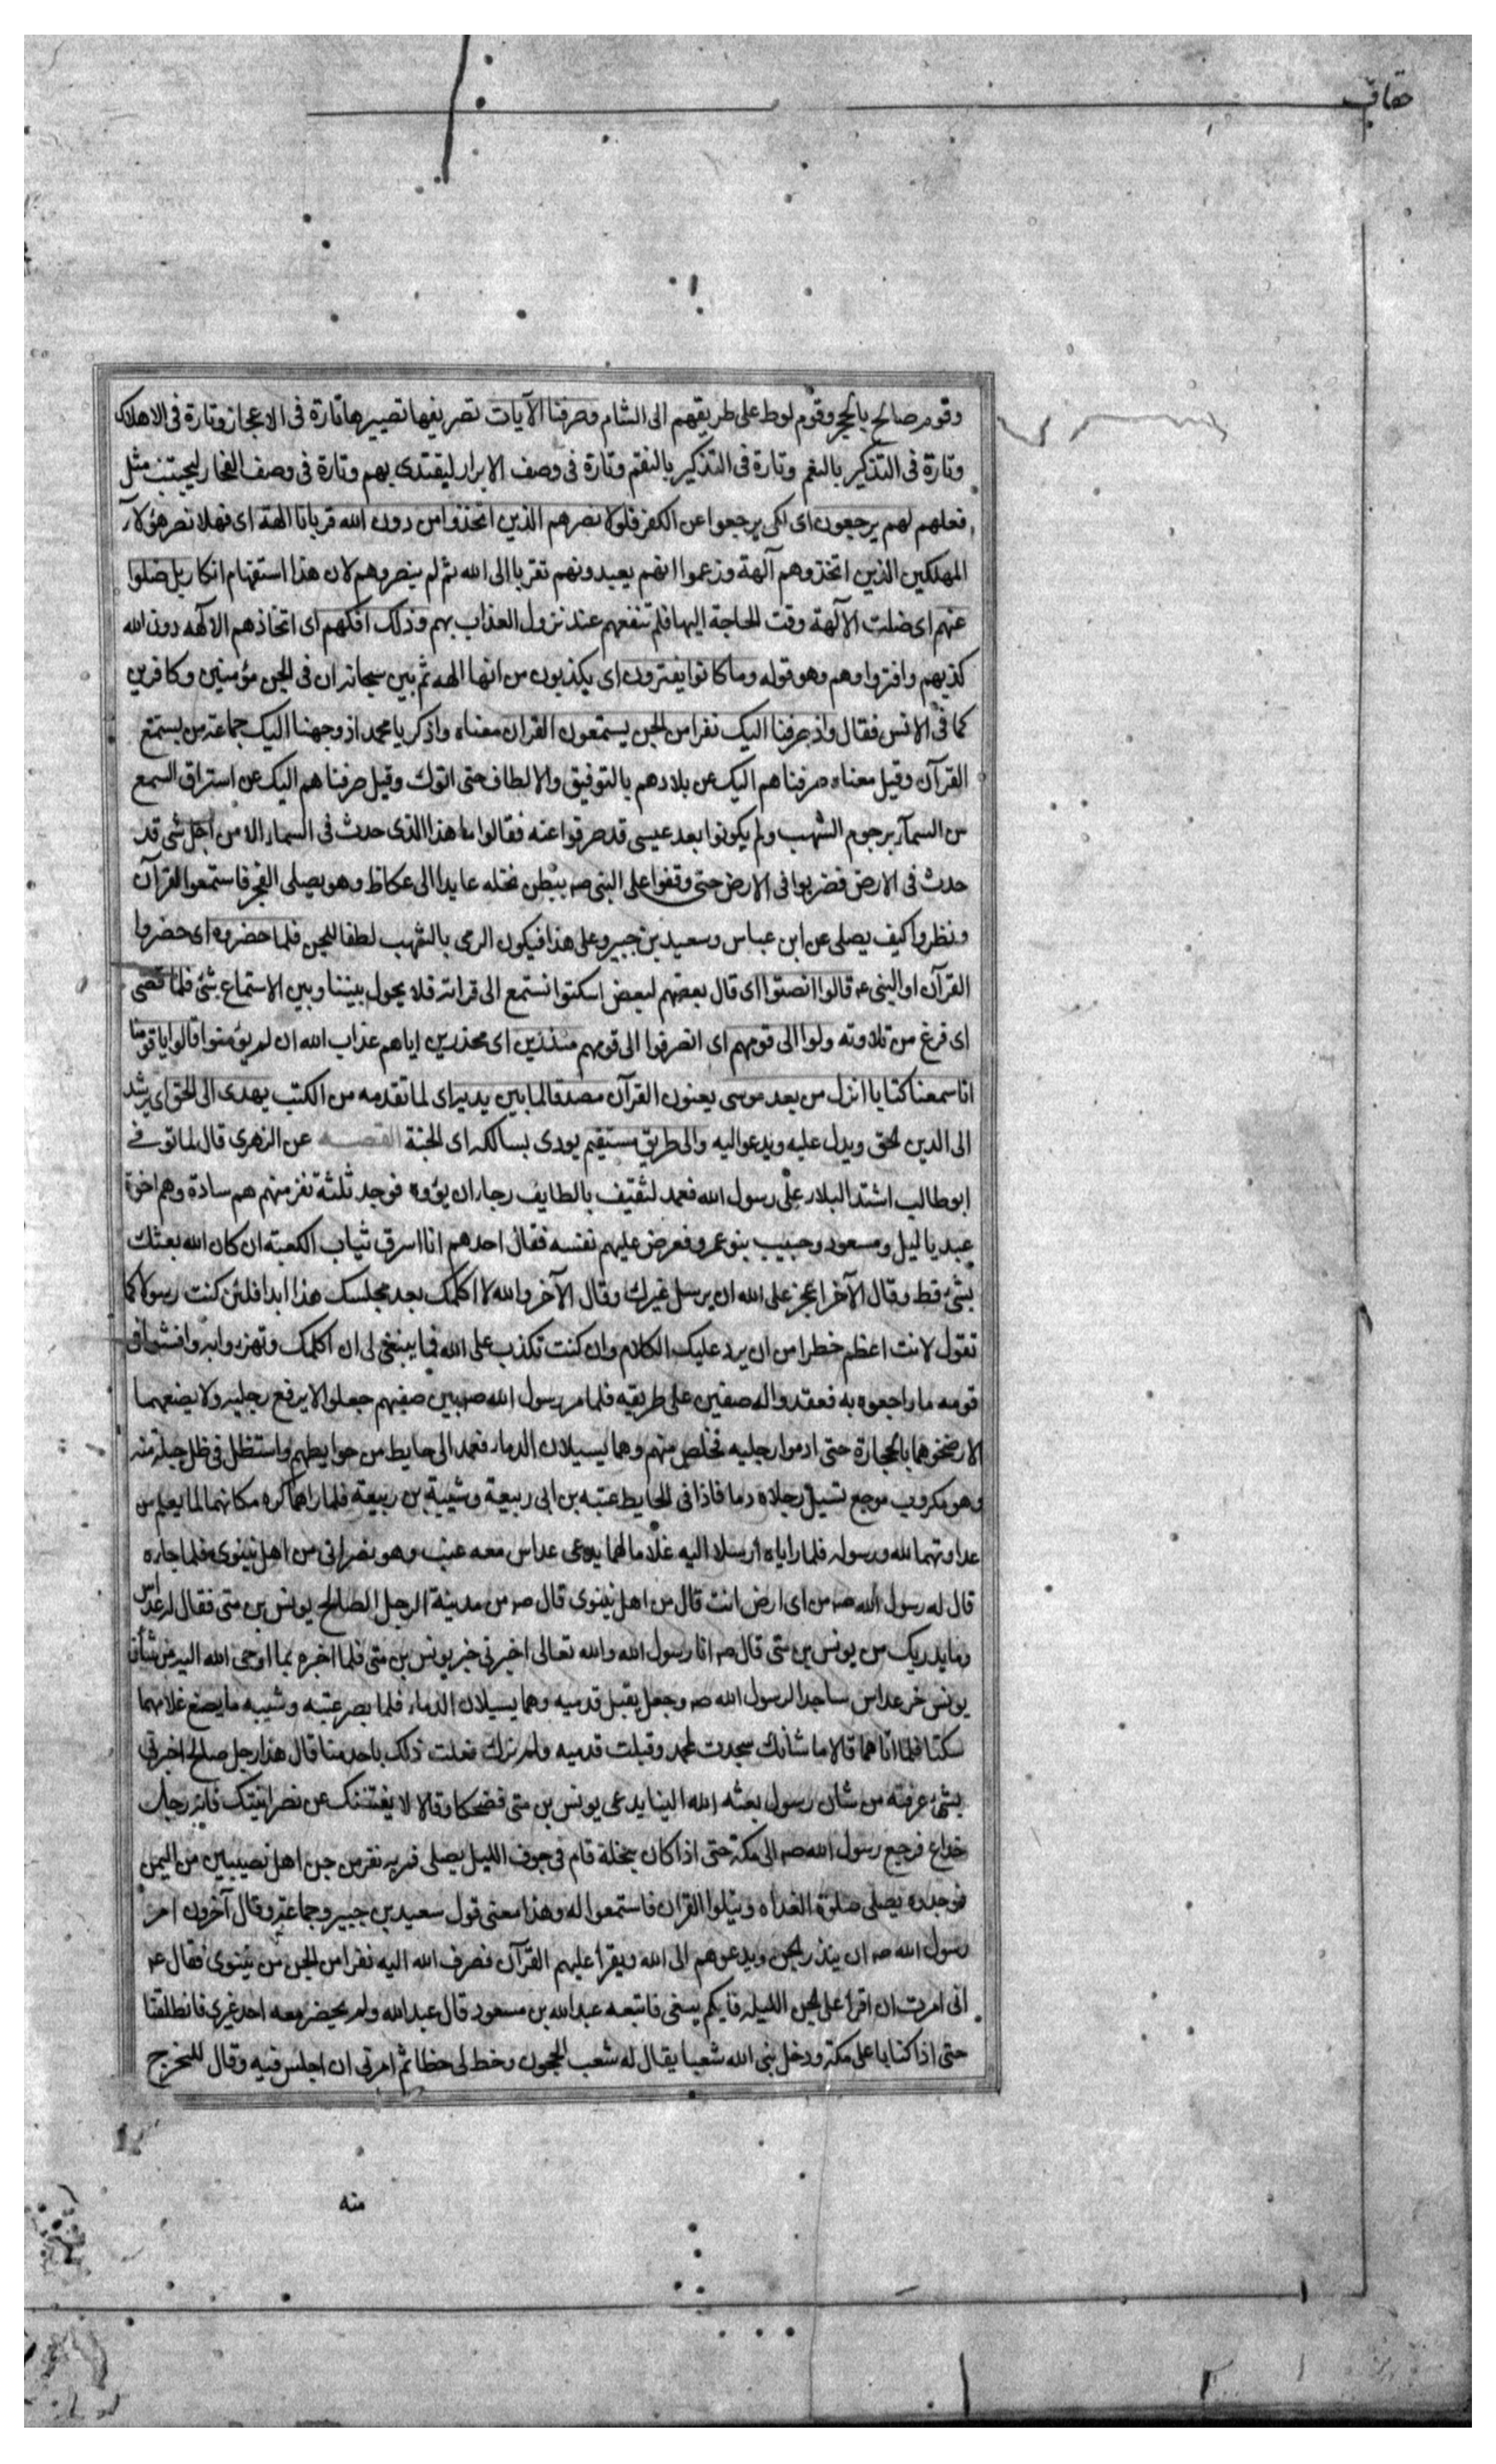 حقاف
وقوم صالح بالحجر وقوم لوط على طريقهم الى الشام وصرفنا الآيات تصريفها تصييرها تارة فى الاعجاز وتارة فى الاهلاك
وتارة فى التذكير بالنعم وتارة فى التذكير بالنقم وتارة فى وصف الابرار ليقتدى بهم وتارة فى وصف الفجار ليجتنب مثل
فعلهم لهم يرجعون اى لكى يرجعوا عن الكفر فلولا نصرهم الذين اتخذوا من دون الله قربانا الهة اى فهلا نصر هؤلآء
المهلكين الذين اتخذوهم آلهة وزعموا انهم يعبدونهم تقربا الى الله ثم لم ينصروهم لان هذا استفهام انكار بل ضلوا
عنهم اى ضلت الآلهة وقت الحاجة اليها فلم تنفعهم عند نزول العذاب بهم وذلك افكهم اى اتخاذهم الآلهه دون الله
كذبهم وافتراوهم وهو قوله وما كانوا يفترون اى يكذبون من انها الهه ثم بين سبحانه ان فى الجن مؤمنين وكافرين
كما فى الانس فقال واذ صرفنا اليك نفرا من الجن يستمعون القران معناه واذكر يا محمد اذ وجهنا اليك جماعة من يستمع
القرآن وقيل معناه صرفناهم اليك عن بلادهم بالتوفيق والالطاف حتى اتوك وقيل صرفناهم اليك عن استراق السمع
من السمآء برجوم الشهب ولم يكونوا بعد عيسى قد صرفوا عنه فقالوا ما هذا الذى حدث فى السماء الا من اجل شئ قد
حدث فى الارض فضربوا فى الارض حتى وقفوا على النبى صه ببطن نخله عايدا الى عكاظ وهو يصلى الفجر فاستمعوا القرآن
ونظروا كيف يصلى عن ابن عباس وسعيد بن جبير وعلى هذا فيكون الرمى بالشهب لطفا للجن فلما حضروه اى حضروا
القرآن او النبى عه قالوا انصتوا اى قال بعضهم لبعض اسكتوا نستمع الى قراته فلا يحول بيننا وبين الاستماع شئ فلما قضى
اى فرغ من تلاوته ولوا الى قومهم اى انصرفوا الى قومهم منذرين اى محذرين اياهم عذاب الله ان لم يؤمنوا قالوا يا قومنا
انا سمعنا كتابا انزل من بعد موسى يعنون القرآن مصدقا لما بين يديه اى لما تقدمه من الكتب يهدى الى الحق اى يرشد
الى الدين الحق ويدل عليه ويدعو اليه والى طريق مستقيم يودى بسالكه اى الجنة القصـــه عن الزهرى قال لما توفى
ابو طالب اشتد البلاء على رسول الله فعمد لثقيف بالطايف رجاء ان يؤوه فوجد ثلثة نفر منهم هم سادة وهم اخوة
عبد ياليل ومسعود وحبيب بنو عمرو فعرض عليهم نفسه فقال احدهم انا اسرق ثياب الكعبة ان كان الله بعثك
بشئ قط وقال الآخر اعجز على الله ان يرسل غيرك وقال الآخر والله لا اكلمك بعد مجلسك هذا ابدا فلئن كنت رسولا كما
تقول لانت اعظم خطرا من ان يرد عليك الكلام وان كنت تكذب على الله فما ينبغى لى ان اكلمك وتهزوا به وافشوا فى
قومه ما راجعوه به فقعدوا له صفين على طريقه فلما مر رسول الله صه بين صفيهم جعلوا لا يرفع رجليه ولا يضعهما
الا رضخوهما بالحجارة حتى ادموا رجليه فخلص منهم وهما يسيلان الدماء فعمد الى حايط من حوايطهم واستظل فى ظل حبلة منه
وهو مكروب موجع تسيل رجلاه دما فاذا فى الحايط عتبه بن ابى ربيعة وشيبة بن ربيعة فلما راهما كره مكانهما لما يعلم من
عداوتهما لله ورسوله فلما راياه ارسلا اليه غلاما لهما يدعى عداس معه عنب وهو نصرانى من اهل نينوى فلما جاءه
قال له رسول الله صه من اى ارض انت قال من اهل نينوى قال صه من مدينة الرجل الصالح يونس بن متى فقال له عداس
وما يدريك من يونس بن متى قال صه انا رسول الله والله تعالى اخبرنى خبر يونس بن متى فلما اخبره بما اوحى الله اليه من شأن
يونس خر عداس ساجدا لرسول الله صه وجعل يقبل قدميه وهما يسيلان الدماء فلما بصر عتبه وشيبه ما يصنع غلامهما
سكتا فلما اتاهما قالا ما شأنك سجدت لمحمد وقبلت قدميه ولم نرك فعلت ذلك باحد منا قال هذا رجل صالح اخبرنى
بشئ عرفته من شان رسول بعثه الله الينا يدعى يونس بن متى فضحكا وقالا لا يفتننك عن نصرانيتك فانه رجل
خداع فرجع رسول الله صه الى مكة حتى اذا كان بنخلة قام فى جوف الليل يصلى فمر به نفر من جن اهل نصيبين من اليمن
فوجدوه يصلى صلوة الغداه ويتلوا القران فاستمعوا له وهذا معنى قول سعيد بن جبير وجماعة وقال آخرون امر
رسول الله صه ان ينذر الجن ويدعوهم الى الله ويقرا عليهم القرآن فصرف الله اليه نفرا من الجن من نينوى فقال عه
انى امرت ان اقرا على الجن الليله فايكم يتبعنى فاتبعه عبدالله بن مسعود قال عبدالله ولم يحضر معه احد غيرى فانطلقنا
حتى اذا كنا باعلى مكة ودخل نبى الله شعبا يقال له شعب الحجون وخط لى خطا ثم امرنى ان اجلس فيه وقال لا تخرج
منه